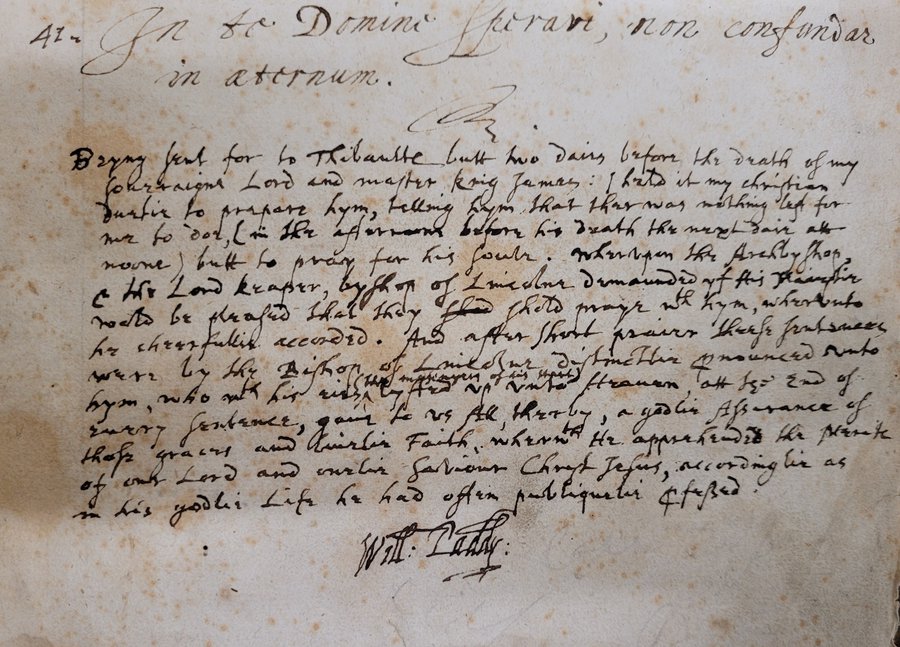 41.
In te Domine Speravi, non confundar
in æternum.
Beyng sent for to Thibaulte butt two daies before the death of my
soveraigne Lord and master King James: I held it my christian
duetie to prepare hym, telling hym that ther was nothing left for
me to doe, (in the afternoone before his death the next daie att
noone) butt to pray for his soule. Wherupon the Archbyshop,
& the Lord Keaper, byshop of Lincolne demaunded yf His Maiestie
wold be pleased that they shold praye wth hym, wherunto
he cheerfullie accorded. And after short praier these sentences
were by the Bishop of Lincolne distinctlie pronounced unto
hym, who wth his eies (the messengers of his hart) lyfted up unto Heaven, att the End of
every sentence, gave to us all, therby, a godlie assurance of
those graces and livelie Faith, wherwth He apprehended the merite
of our Lord and onelie Saviour Christ Jesus, accordinglie as
in his godlie Life he had often publiquelie professed.
Will: Paddy: